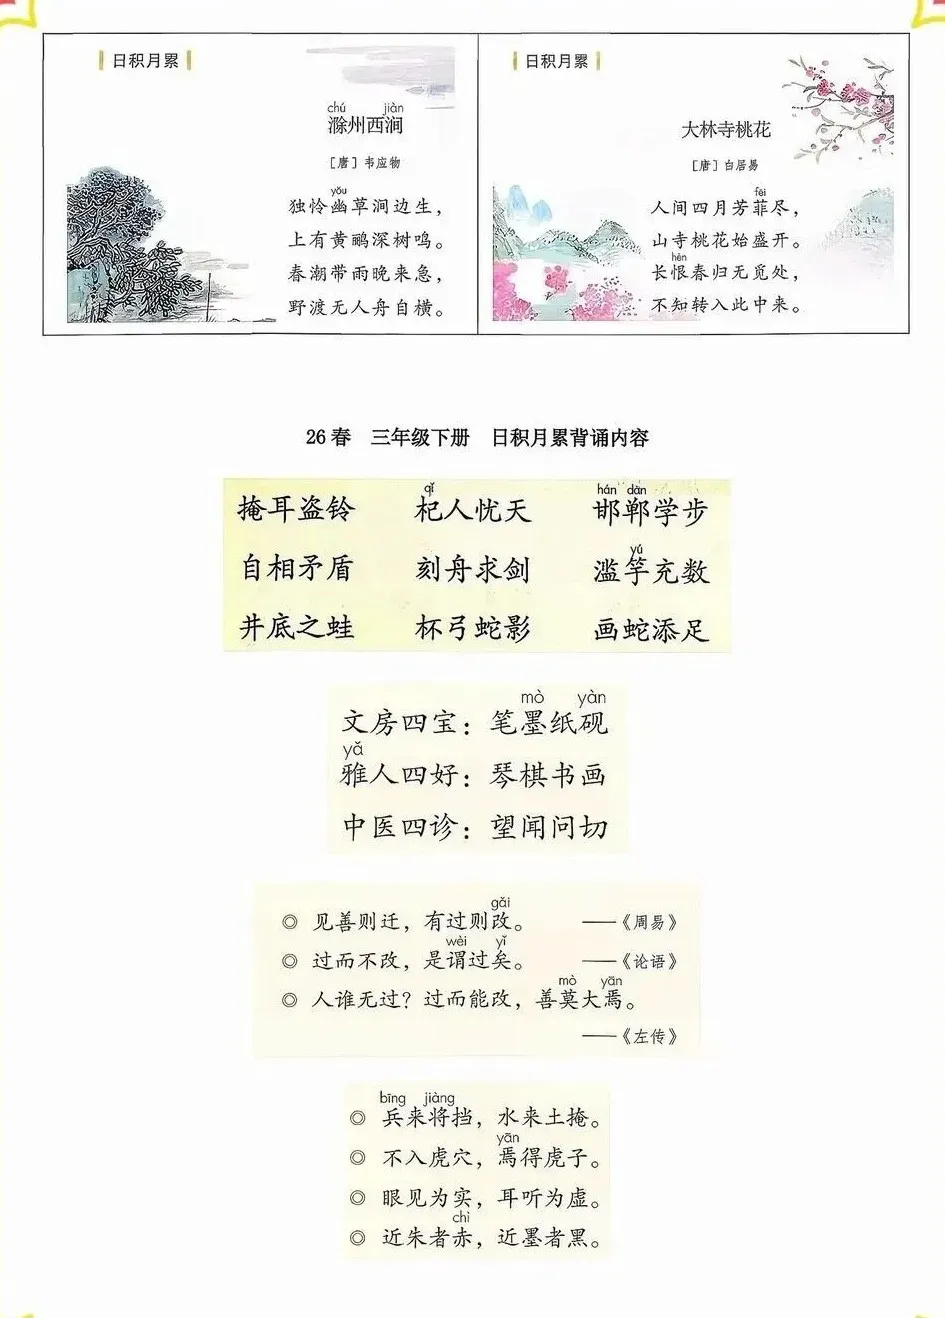 日积月累
chú jiàn
滁州西涧
［唐］韦应物
yōu
独怜幽草涧边生，
上有黄鹂深树鸣。
春潮带雨晚来急，
野渡无人舟自横。
日积月累
大林寺桃花
［唐］白居易
fēi
人间四月芳菲尽，
山寺桃花始盛开。
hèn
长恨春归无觅处，
不知转入此中来。
26春 三年级下册 日积月累背诵内容
qǐ hán dān
掩耳盗铃 杞人忧天 邯郸学步
yú
自相矛盾 刻舟求剑 滥竽充数
井底之蛙 杯弓蛇影 画蛇添足
mò yàn
文房四宝：笔墨纸砚
yǎ
雅人四好：琴棋书画
中医四诊：望闻问切
gǎi
◎ 见善则迁，有过则改。 ——《周易》
wèi yǐ
◎ 过而不改，是谓过矣。 ——《论语》
mò yān
◎ 人谁无过？过而能改，善莫大焉。
——《左传》
bīng jiàng
◎ 兵来将挡，水来土掩。
yān
◎ 不入虎穴，焉得虎子。
◎ 眼见为实，耳听为虚。
chì
◎ 近朱者赤，近墨者黑。